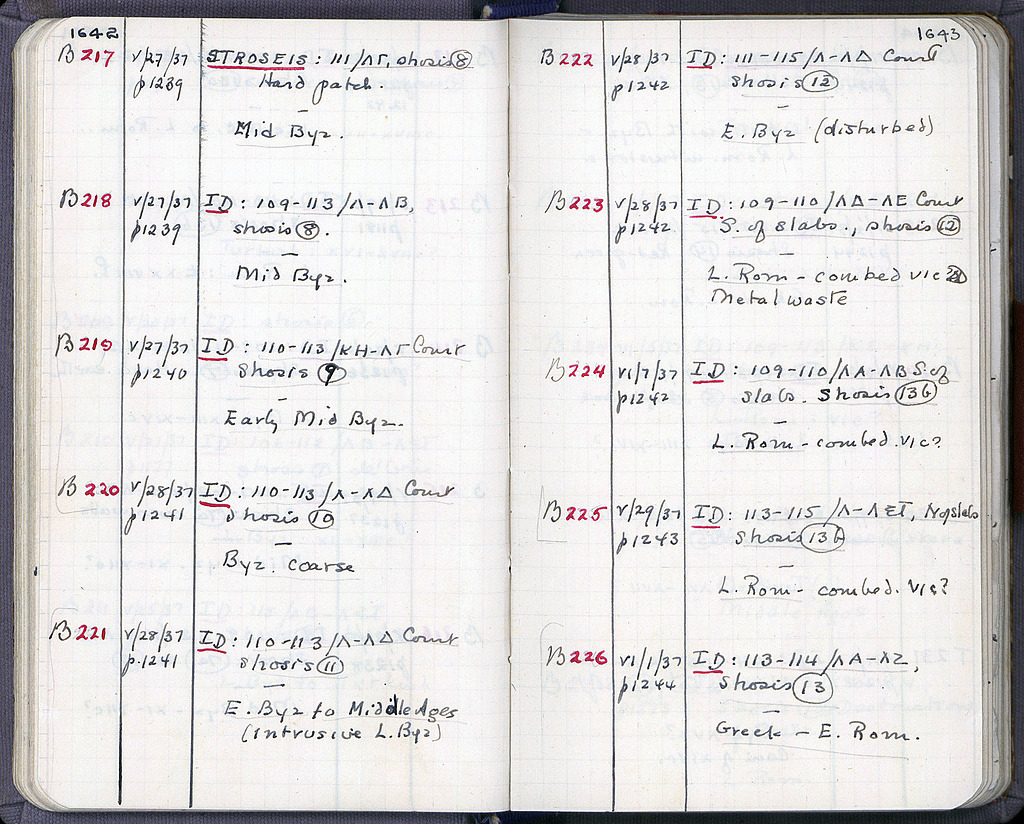 1642
B217 V/27/37 STROSEIS: 111/ΛΓ, shosis 8
p1239 Hard patch.
—
Mid Byz.
B218 V/27/37 ID: 109-113/Λ-ΛB,
p1239 shosis 8.
—
Mid Byz.
B219 V/27/37 ID: 110-113/KH-ΛΓ Court
p1240 Shosis 9
—
Early Mid Byz.
B220 V/28/37 ID: 110-113/Λ-ΛΔ Court
p1241 shosis 10
—
Byz. coarse
B221 V/28/37 ID: 110-113/Λ-ΛΔ Court
p.1241 shosis 11
—
E. Byz to Middle Ages
(intrusive L. Byz)
1643
B222 V/28/37 ID: 111-115/Λ-ΛΔ Court
p1242 shosis 12
—
E. Byz (disturbed)
B223 V/28/37 ID: 109-110/ΛΔ-ΛE Court
p1242 S. of slabs., shosis 12
—
L. Rom - combed vic
Metal waste
B224 VI/7/37 ID: 109-110/ΛA-ΛB S. of
p1242 slabs. Shosis 13b
—
L. Rom - combed. vic?
B225 V/29/37 ID: 113-115/Λ-ΛΣT, N of slabs
p1243 Shosis 13b
—
L. Rom - combed. vic?
B226 VI/1/37 ID: 113-114/ΛA-ΛZ,
p1244 Shosis 13
—
Greek - E. Rom.